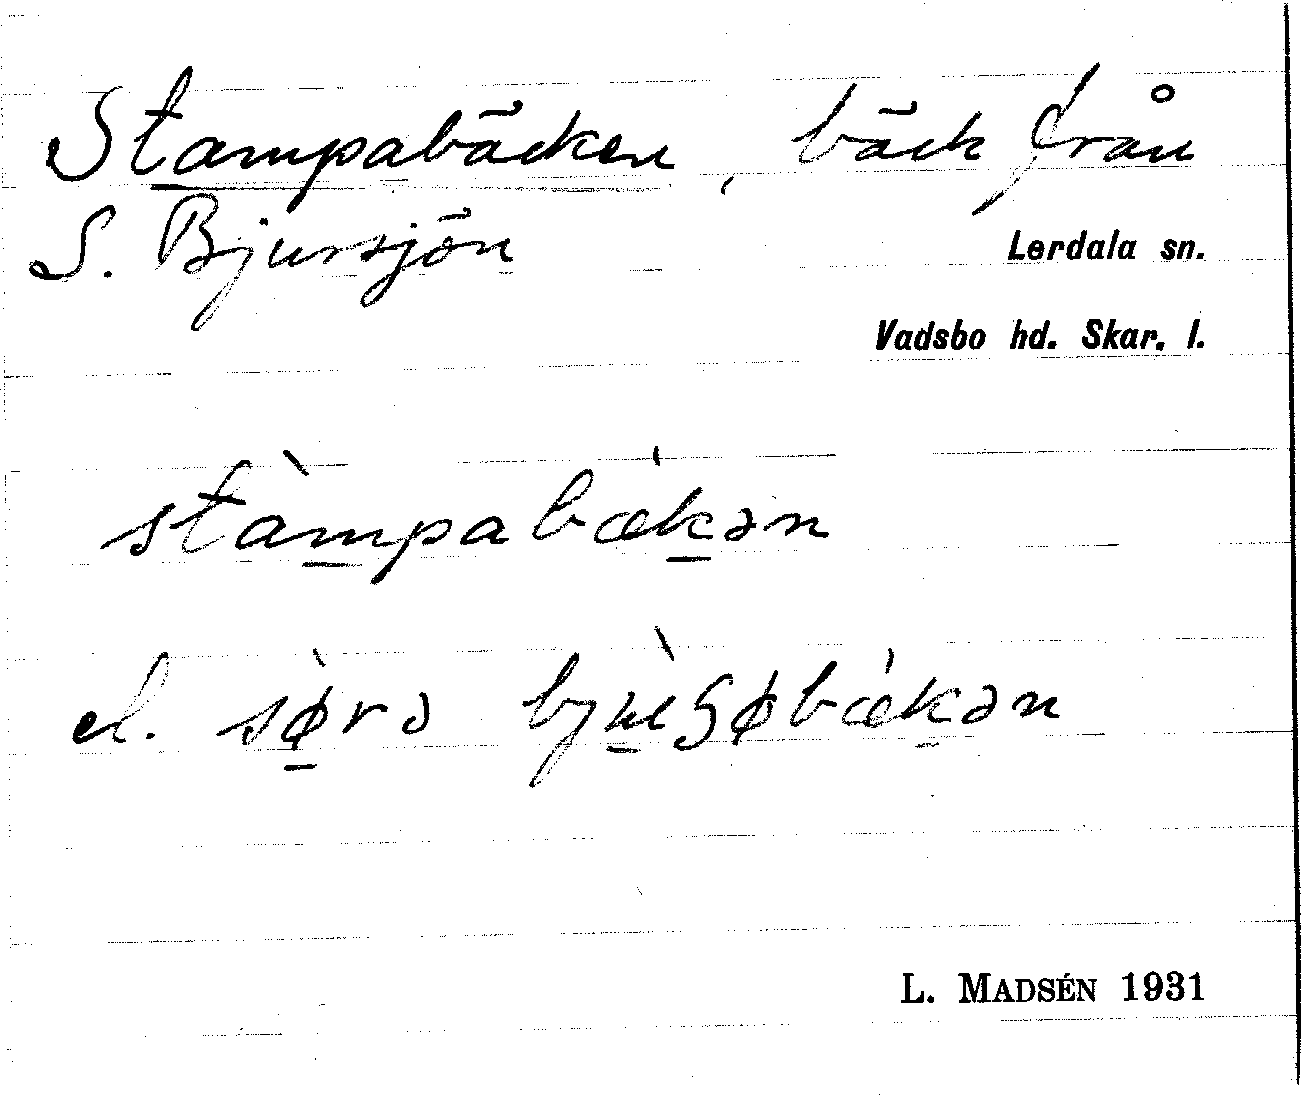 Stampabäcken, bäck från
S. Bjursjön
Lerdala sn.
Vadsbo hd. Skar. l.
stàm̲pabǽk̲ən
el. sø̲̀rə bjù̲ʂøbǽk̲ən
L. MADSÉN 1931